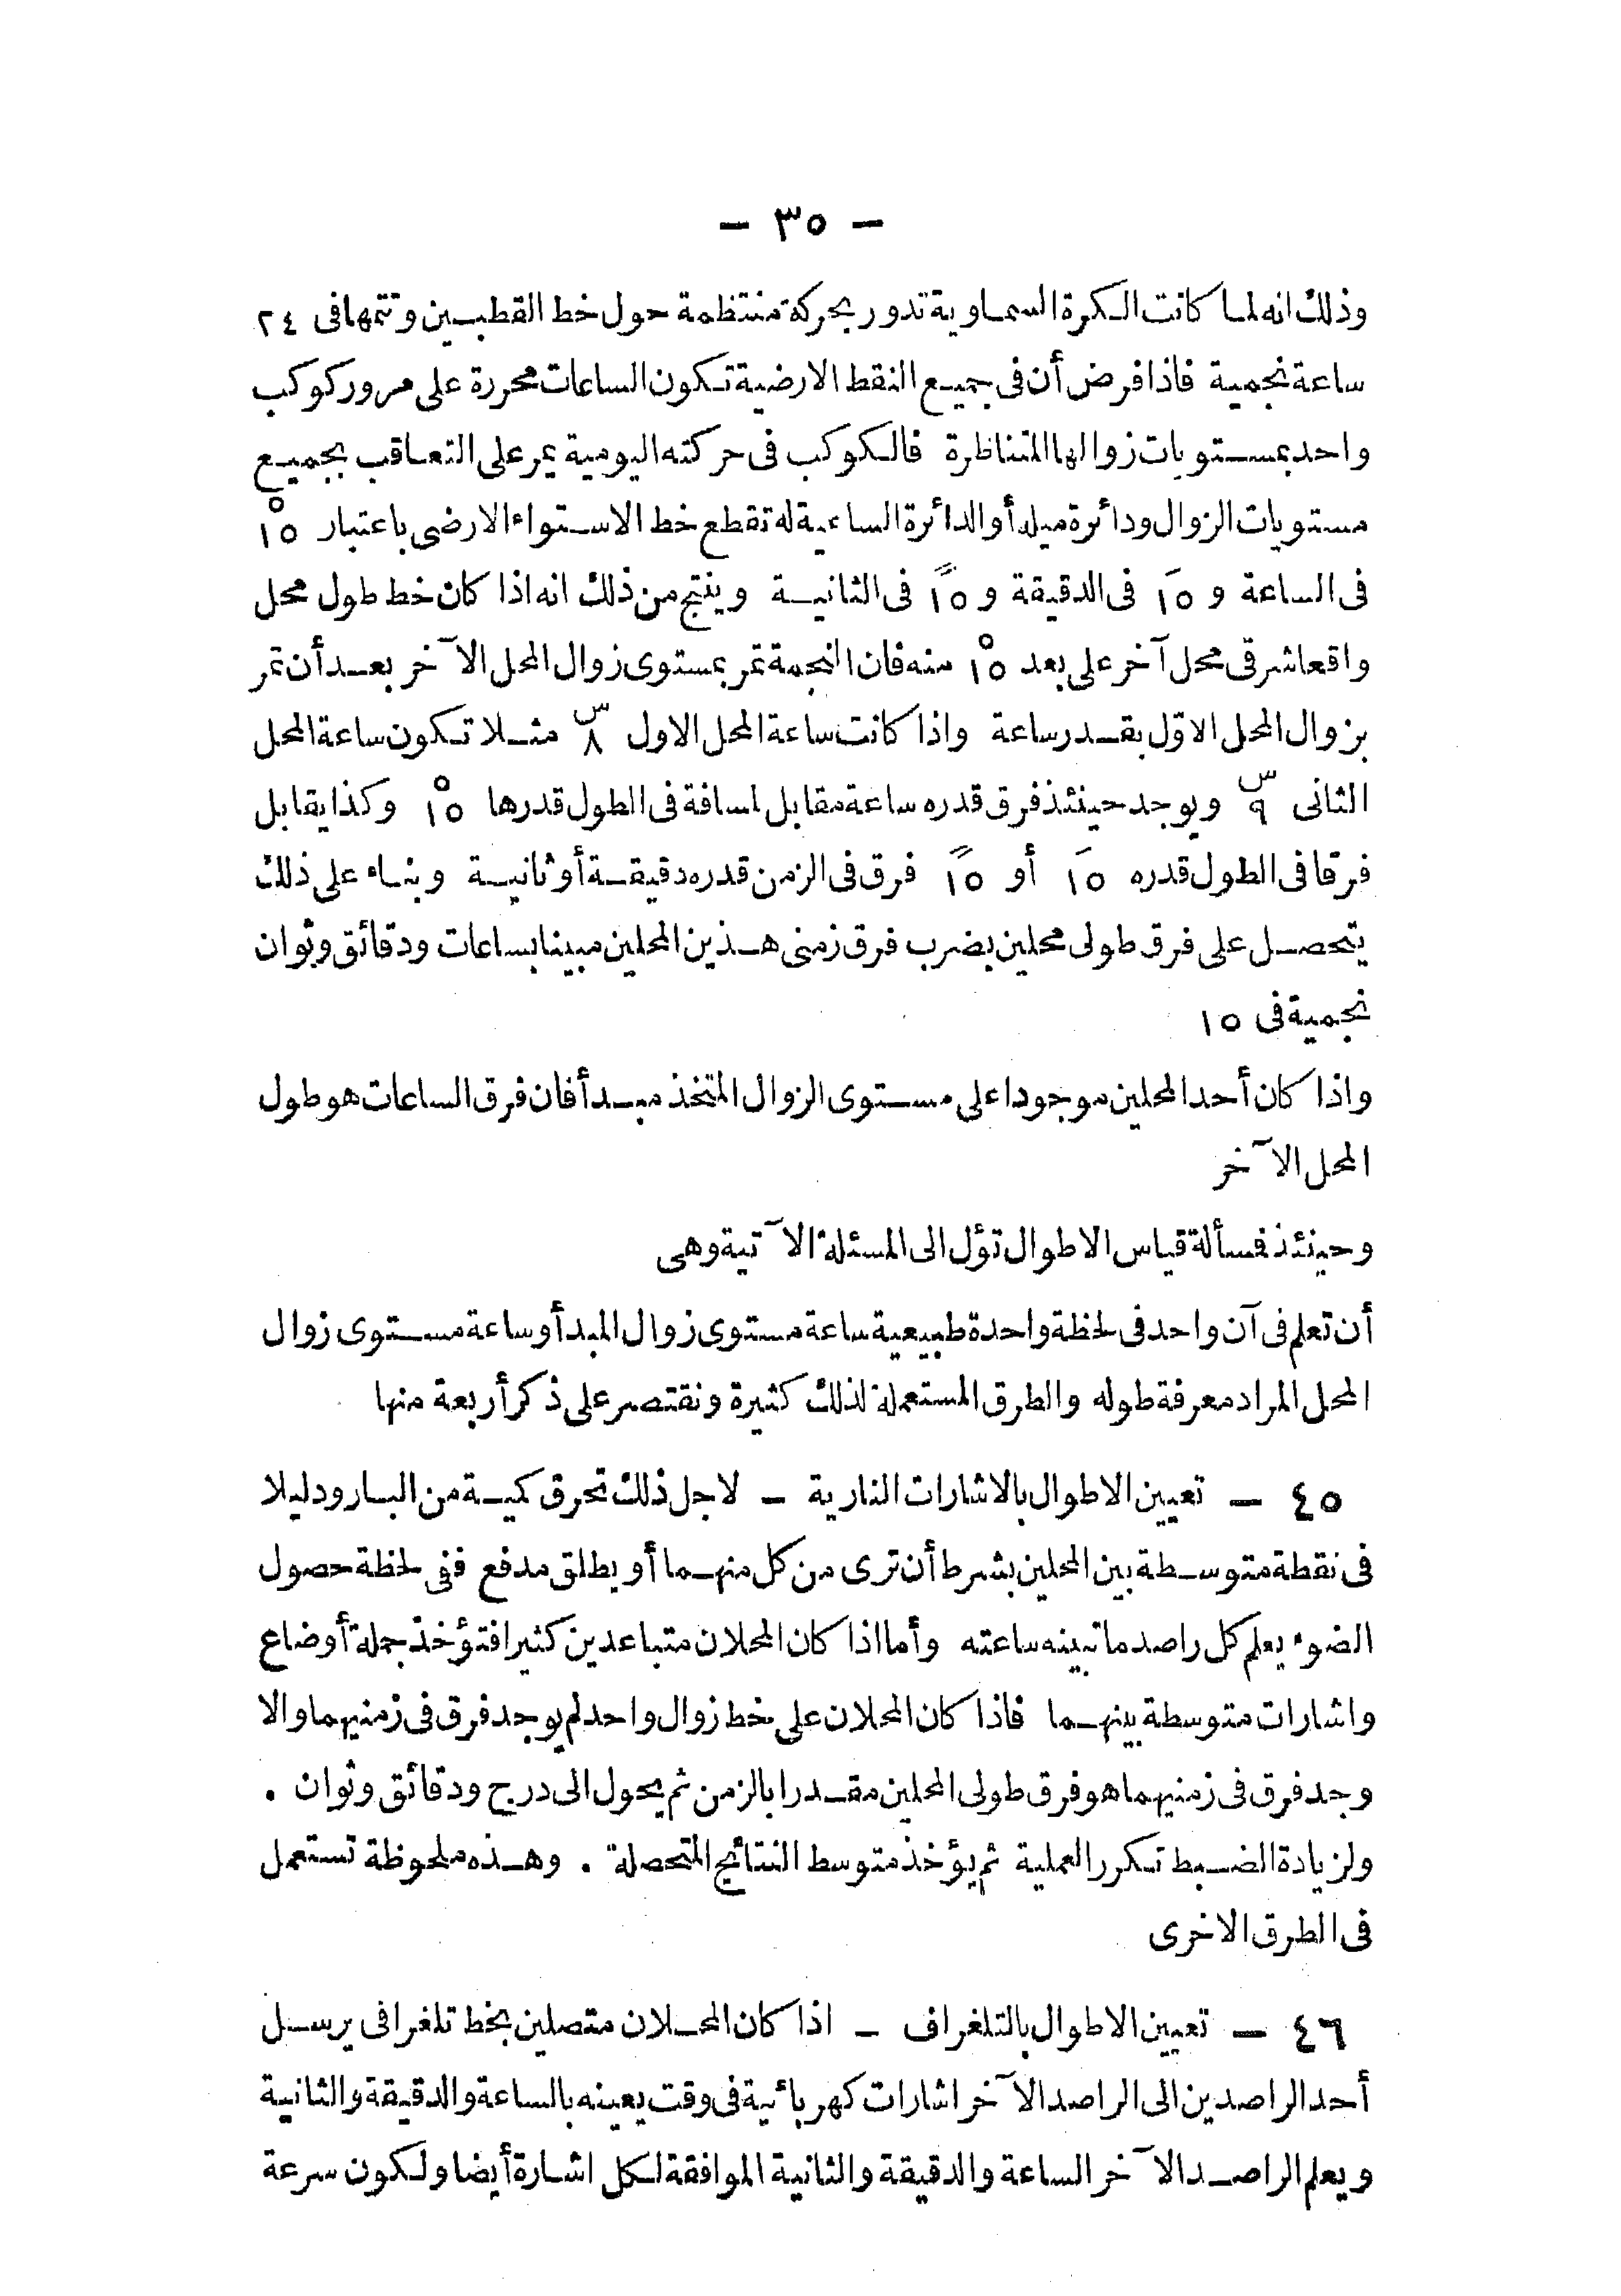 — ٣٥ —
وذلك انه لما كانت الكرة السماوية تدور بحركة منتظمة حول خط القطبين وتتمها فى ٢٤
ساعة نجمية فاذا فرض أن فى جميع النقط الارضية تكون الساعات محررة على مرور كوكب
واحد بمستويات زوالها المتناظرة فالكوكب فى حركته اليومية يمر على التعاقب بجميع
مستويات الزوال ودائرة ميله أو الدائرة الساعية له تقطع خط الاستواء الارضى باعتبار ١٥°
فى الساعة و ١٥َ فى الدقيقة و ١٥ً فى الثانية وينتج من ذلك انه اذا كان خط طول محل
واقعا شرقى محل آخر على بعد ١٥° منه فان النجمة تمر بمستوى زوال المحل الآخر بعد أن تمر
بزوال المحل الاوّل بقدر ساعة واذا كانت ساعة المحل الاول ٨س مثلا تكون ساعة المحل
الثانى ٩س ويوجد حينئذ فرق قدره ساعة مقابل لسافة فى الطول قدرها ١٥° وكذا يقابل
فرقا فى الطول قدره ١٥َ أو ١٥ً فرق فى الزمن قدره دقيقة أو ثانية وبناء على ذلك
يتحصل على فرق طولى محلين بضرب فرق زمنى هذين المحلين مبينا بساعات ودقائق وثوان
نجمية فى ١٥
واذا كان أحد المحلين موجودا على مستوى الزوال المتخذ مبدأ فان فرق الساعات هو طول
المحل الآخر
وحينئذ فسألة قياس الاطوال تؤل الى المسئلة الآتية وهى
أن تعلم فى آن واحد فى لحظة واحدة طبيعية ساعة مستوى زوال المبدأ وساعة مستوى زوال
المحل المراد معرفة طوله والطرق المستعملة لذلك كثيرة ونقتصر على ذكر أربعة منها
٤٥ — تعيين الاطوال بالاشارات النارية — لاجل ذلك تحرق كمية من البارود ليلا
فى نقطة متوسطة بين المحلين بشرط أن ترى من كل منهما أو يطلق مدفع ففى لحظة حصول
الضوء يعلم كل راصد ما تبينه ساعته وأما اذا كان المحلان متباعدين كثيرا فتؤخذ جملة أوضاع
واشارات متوسطة بينهما فاذا كان المحلان على خط زوال واحد لم يوجد فرق فى زمنيهما والا
وجد فرق فى زمنيهما هو فرق طولى المحلين مقدرا بالزمن ثم يحول الى درج ودقائق وثوان .
ولزيادة الضبط تكرر العملية ثم يؤخذ متوسط النتائج المتحصلة . وهذه ملحوظة تستعمل
فى الطرق الاخرى
٤٦ — تعيين الاطوال بالتلغراف — اذا كان المحلان متصلين بخط تلغرافى يرسل
أحد الراصدين الى الراصد الآخر اشارات كهربائية فى وقت يعينه بالساعة والدقيقة والثانية
ويعلم الراصد الآخر الساعة والدقيقة والثانية الموافقة لكل اشارة أيضا ولكون سرعة